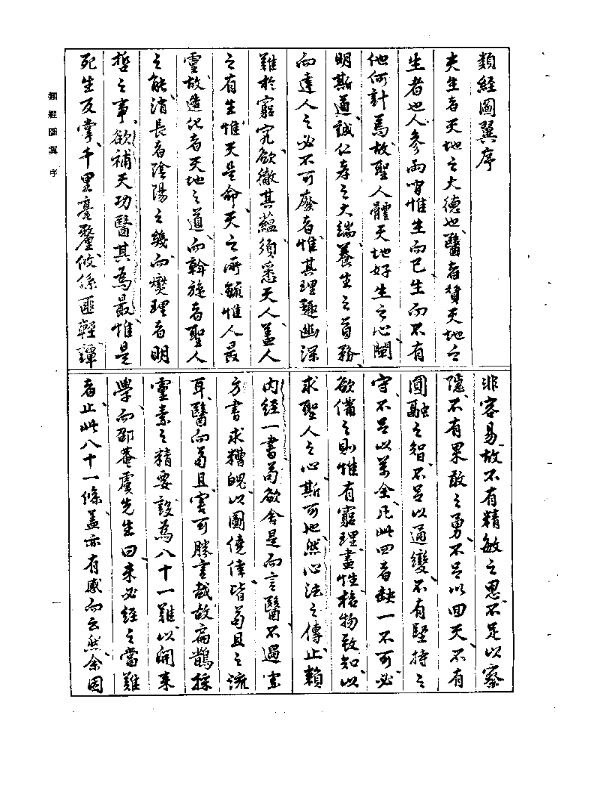 類經圖翼序
夫生者天地之大德也醫者贊天地之
生者也人參兩間惟生而已生而不有
他何計焉故聖人體天地好生之心闡
明斯道誠仁孝之大端養生之首務
而達人之必不可廢者惟其理趣幽深
難於窮究欲徹其蘊須悉天人蓋人
之有生惟天是命天之所毓惟人最
靈故造化者天地之道而斡旋者聖人
之能消長者陰陽之幾而燮理者明
哲之事欲補天功醫其為最惟是
死生反掌千里毫釐攸係匪輕譚
非容易故不有精敏之思不足以察
隱不有果敢之勇不足以回天不有
圓融之智不足以通變不有堅持之
守不足以萬全凡此四者缺一不可必
欲備之則惟有窮理盡性格物致知以
求聖人之心斯可也然心法之傳止賴
內經一書苟欲舍是而言醫不過索
方書求糟魄以圖僥倖皆苟且之流
耳醫而苟且害可勝言哉故扁鵲採
靈素之精要設為八十一難以開來
學而邵菴虞先生曰未必經之當難
者止此八十一條蓋亦有感而云然余因
類經圖翼 序
一